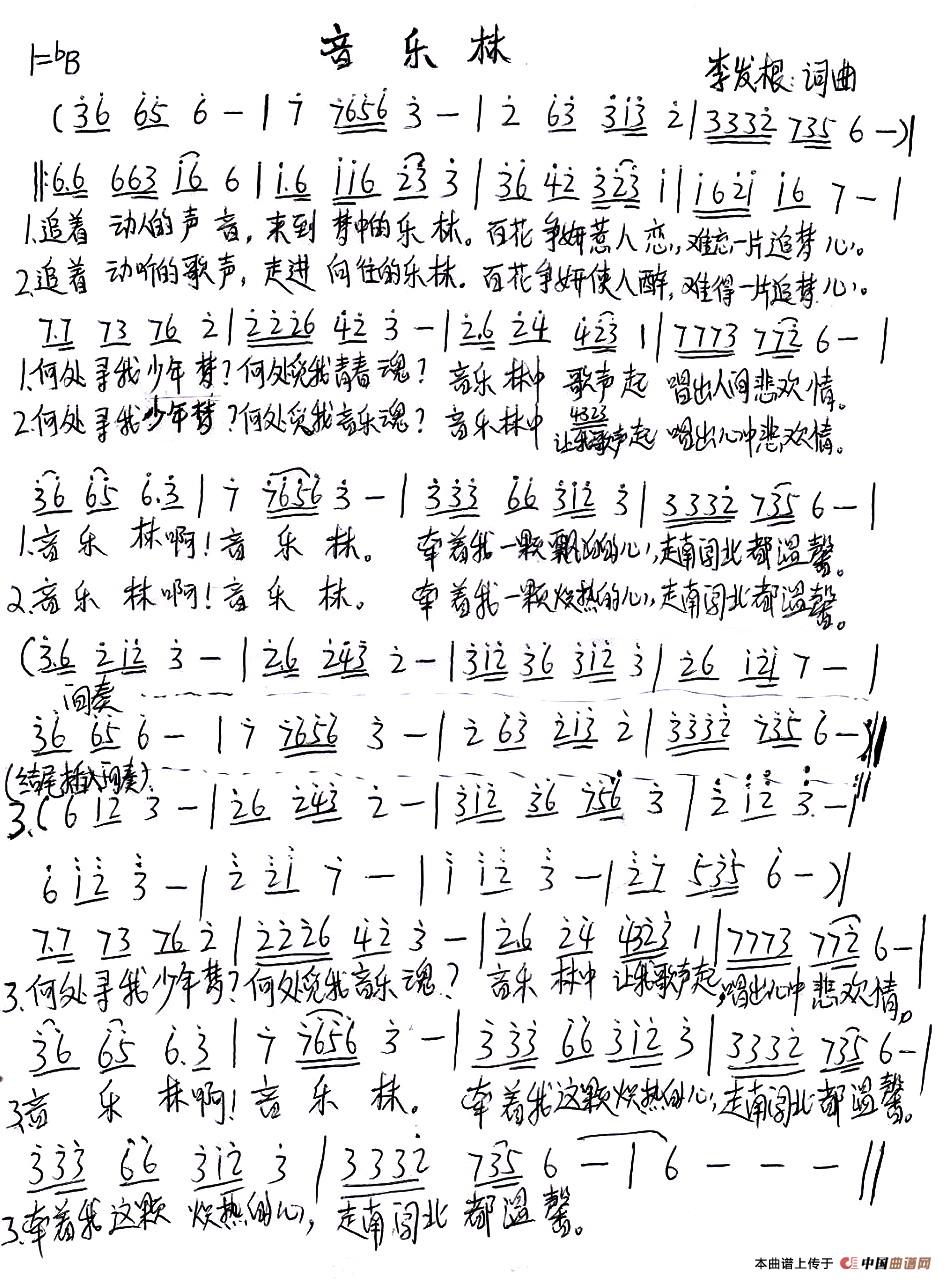 音乐林
1=ᵇB
李发根:词曲
(36 65 6 - | 7 7656 3 - | 2 63 313 2 | 3332 735 6 - )|
‖:6.6 663 i6 6 | 1.6 116 23 3 | 36 42 323 1 | 1621 16 7 - |
1.追着 动人的声音,来到 梦中的乐林。百花争妍惹人恋,难忘一片追梦心。
2.追着 动听的歌声,走进 向往的乐林。百花争妍使人醉,难得一片追梦心。
7.7 73 76 2 | 2226 42 3 - | 2.6 24 423 1 | 7773 772 6 - |
1.何处寻我少年梦?何处觅我青春魂? 音乐林中 歌声起 唱出人间悲欢情。
4323
2.何处寻我少年梦?何处觅我音乐魂? 音乐林中 让我歌声起 唱出心中悲欢情。
36 65 6.3 | 7 7656 3 - | 333 66 312 3 | 3332 735 6 - |
1.音乐林啊!音乐林。 牵着我一颗飘泊的心,走南闯北都温馨。
2.音乐林啊!音乐林。 牵着我一颗炽热的心,走南闯北都温馨。
(3.6 212 3 - | 2.6 243 2 - | 312 36 312 3 | 26 121 7 - |
间奏
36 65 6 - | 7 7656 3 - | 2 63 213 2 | 3332 735 6 - :‖
(结尾插入间奏)
3.(6 12 3 - | 26 243 2 - | 312 36 756 3 | 2 12 3 - |
6 12 3 - | 2 21 7 - | 1 12 3 - | 27 535 6 - )|
7.7 73 76 2 | 2226 42 3 - | 2.6 24 4323 1 | 7773 772 6 - |
3.何处寻我少年梦?何处觅我音乐魂? 音乐林中 让我歌声起,唱出心中悲欢情。
36 65 6.3 | 7 7656 3 - | 333 66 312 3 | 3332 735 6 - |
3.音乐林啊!音乐林。 牵着我这颗炽热的心,走南闯北都温馨。
333 66 312 3 | 3332 735 6 - | 6 - - - ‖
3.牵着我这颗 炽热的心,走南闯北都温馨。
本曲谱上传于 中国曲谱网